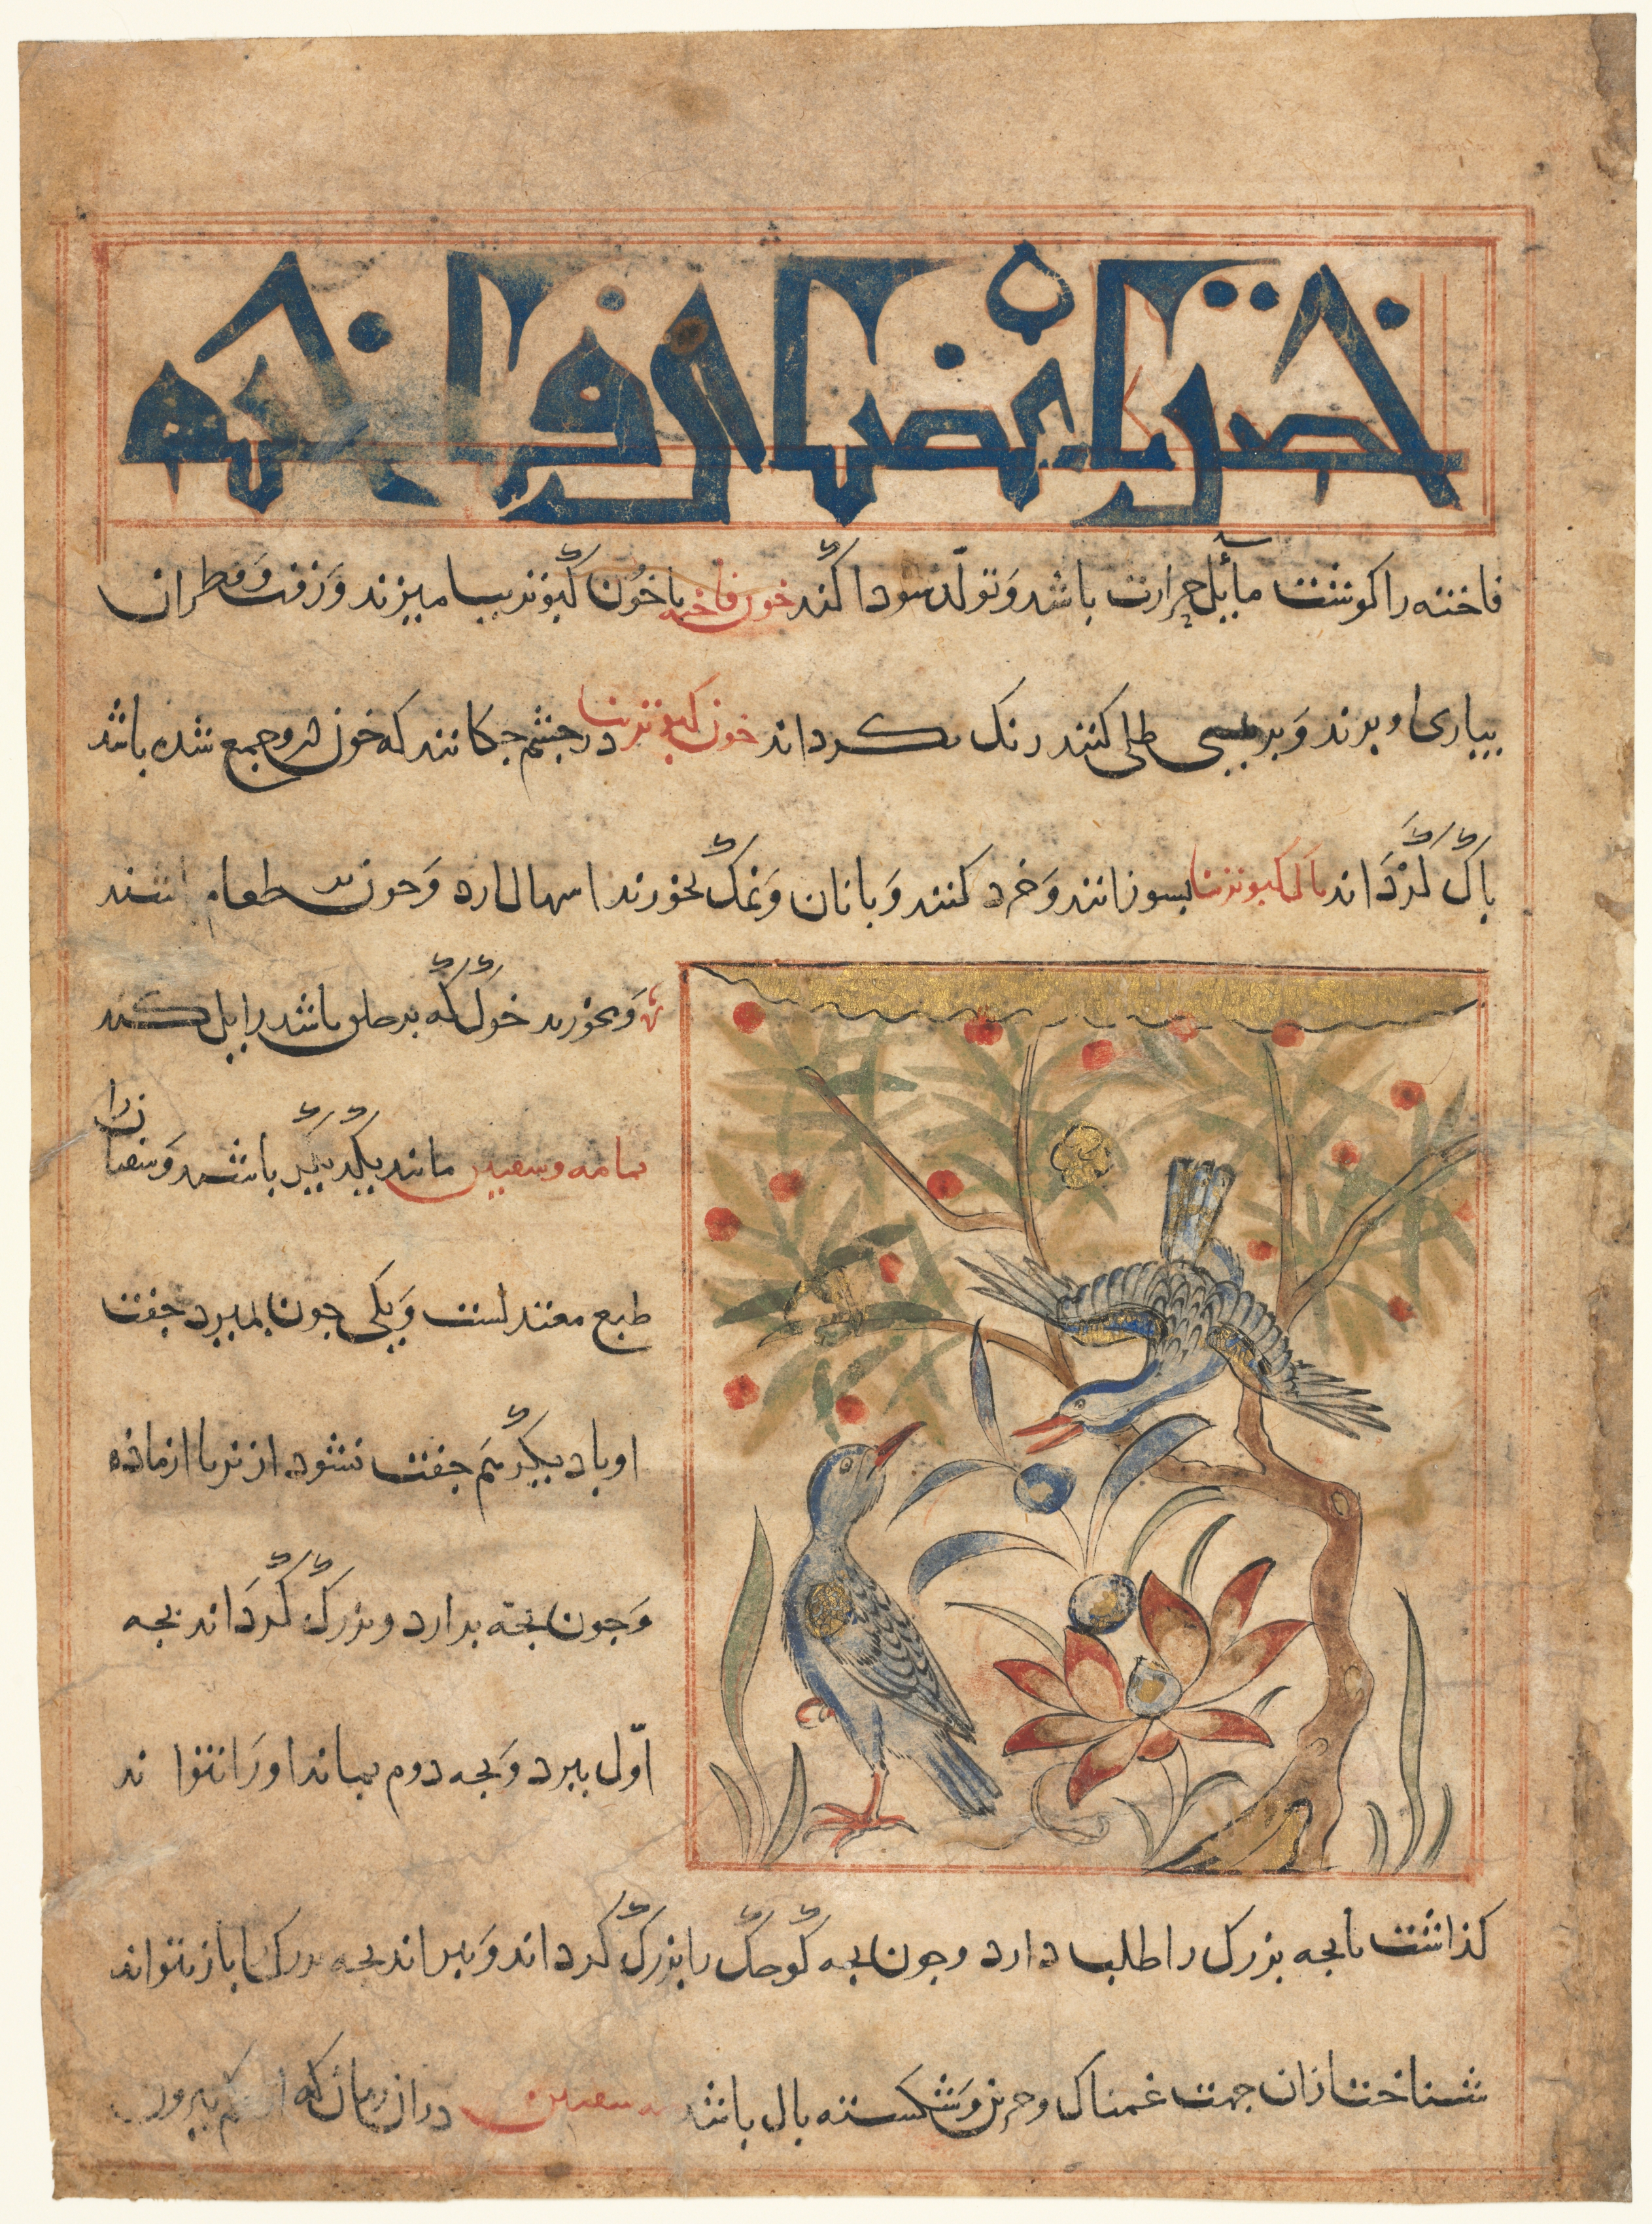 خواص و اعضای فاخته
فاخته را کوشت مایل حرارت باشد وَتولّد سودا کند خون فاخته با خون کبوتر بیامیزند وَزفت وَقطران
بیاری او برند وَبر پیسی طلی کنند رنک بکرداند خون کبوتر نر در جشم جکانند که خون درو جمع شده باشد
باک کرداند بال کبوتر نر بسوزانند وَخرد کنند وَبا نان وَنمک بخورند اسهال ارد وَجون طعام
وَبخورند خون که بر حلق باشد زایل کند
یمامه و سفنین مانند یکدیکر باشند وَسفنین را
طبع معتدلست وَیکی جون بمیرد جفت
او با دیکر هم جفت نشود از نر یا از ماذه
وَجون بجه برارد و بزرک کرداند بجه
اوّل ببرد وَبجه دوم بماند او را نتواند
کذاشت تا بجه بزرک را طلب دارد و جون بجه کوجک را بزرک کرداند وَببراند بجه بزرک را باز نتواند
شناخت ازان جهت غمناک و حزین وَشکسته بال باشد سفنین دران زمان که